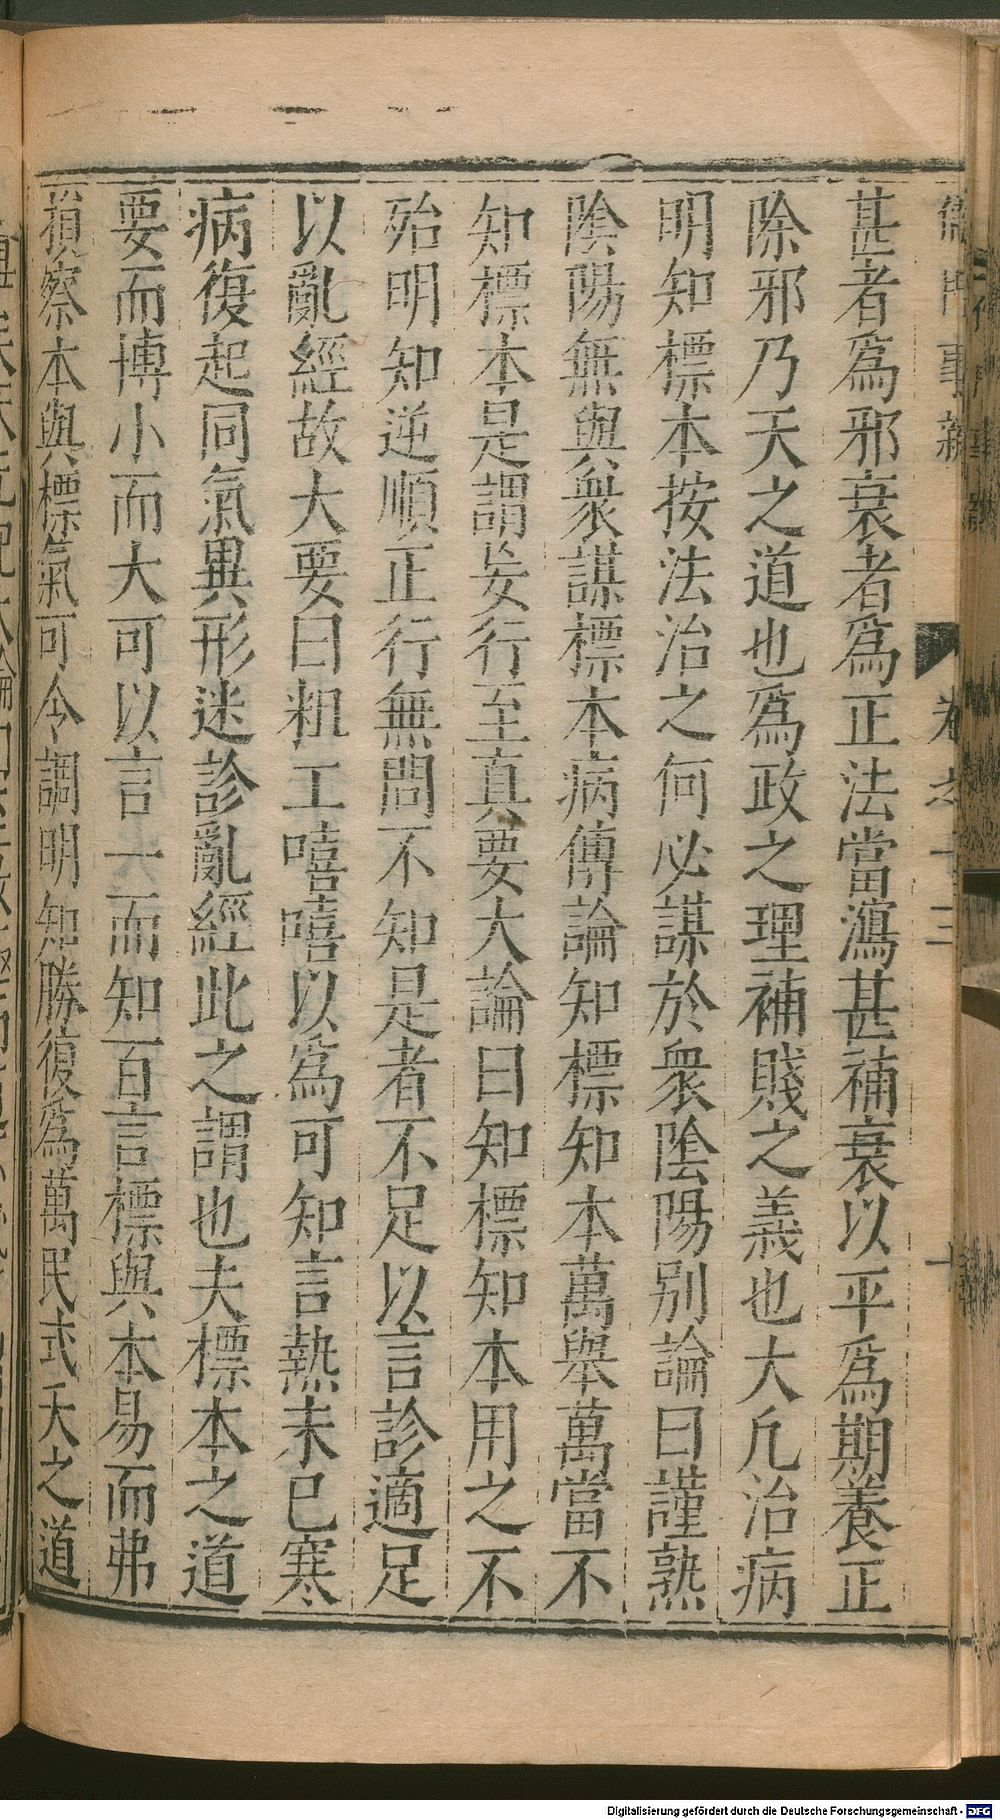 儒門事親
卷之十三
十
甚者爲邪衰者爲正法當瀉甚補衰以平爲期養正
除邪乃天之道也爲政之理補賤之義也大凡治病
明知標本按法治之何必謀於衆陰陽別論曰謹熟
陰陽無與衆謀標本病傳論知標知本萬舉萬當不
知標本是謂妄行至真要大論曰知標知本用之不
殆明知逆順正行無問不知是者不足以言診適足
以亂經故大要曰粗工嘻嘻以爲可知言熱未已寒
病復起同氣異形迷診亂經此之謂也夫標本之道
要而博小而大可以言一而知百言標與本易而弗
損察本與標氣可令調明知勝復爲萬民式天之道
Digitalisierung gefördert durch die Deutsche Forschungsgemeinschaft - DFG